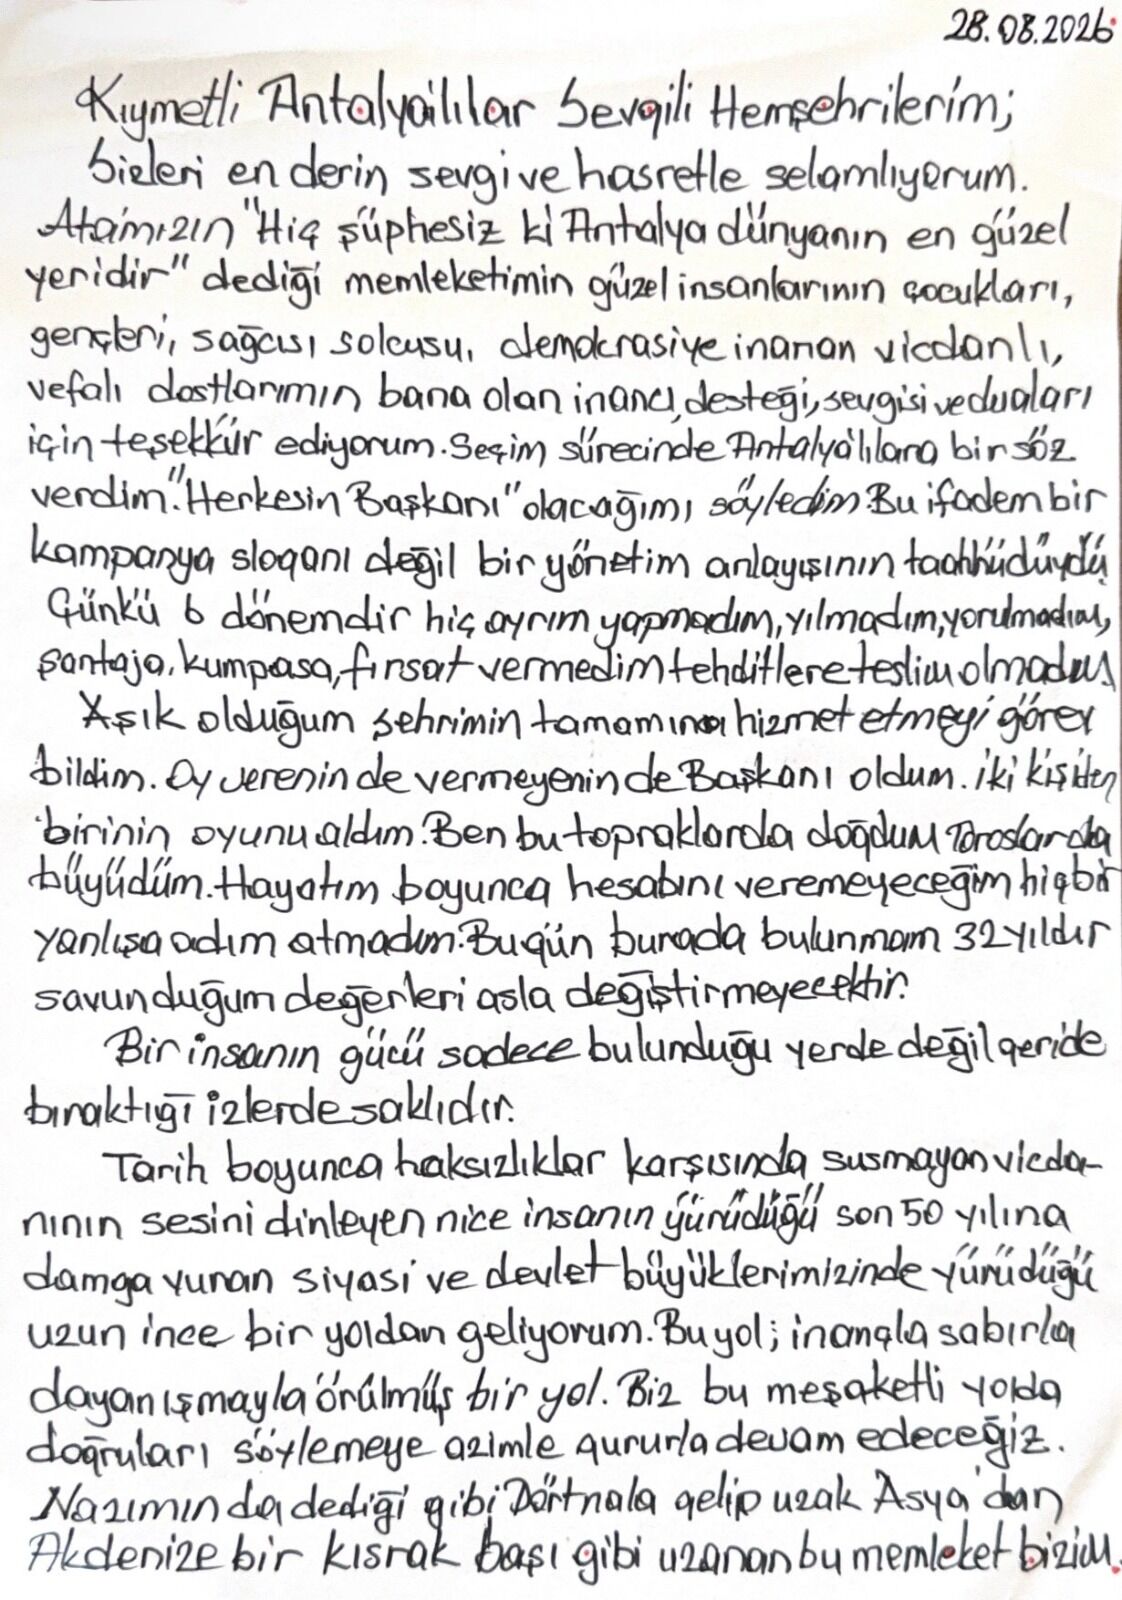 28.08.2026
Kıymetli Antalyalılar Sevgili Hemşehrilerim;
Sizleri en derin sevgi ve hasretle selamlıyorum.
Atamızın "Hiç şüphesiz ki Antalya dünyanın en güzel
yeridir" dediği memleketimin güzel insanlarının çocukları,
gençleri, sağcısı solcusu, demokrasiye inanan vicdanlı,
vefalı dostlarımın bana olan inancı, desteği, sevgisi ve duaları
için teşekkür ediyorum. Seçim sürecinde Antalya'lılara bir söz
verdim. "Herkesin Başkanı" olacağımı söyledim. Bu ifadem bir
kampanya sloganı değil bir yönetim anlayışının taahhüdüydü
Günkü 6 dönemdir hiç ayrım yapmadım, yılmadım, yorulmadım,
şantaja, kumpasa, fırsat vermedim tehditlere teslim olmadım
Aşık olduğum şehrimin tamamına hizmet etmeyi görev
bildim. Oy verenin de vermeyenin de Başkanı oldum. İki kişiden
birinin oyunu aldım. Ben bu topraklarda doğdum Toroslarda
büyüdüm. Hayatım boyunca hesabını veremeyeceğim hiçbir
yanlışa adım atmadım. Bugün burada bulunmam 32 yıldır
savunduğum değerleri asla değiştirmeyecektir.
Bir insanın gücü sadece bulunduğu yerde değil geride
bıraktığı izlerde saklıdır.
Tarih boyunca haksızlıklar karşısında susmayan vicda-
nının sesini dinleyen nice insanın yürüdüğü son 50 yılına
damga vuran siyasi ve devlet büyüklerimizinde yürüdüğü
uzun ince bir yoldan geliyorum. Bu yol; inançla sabırla
dayanışmayla örülmüş bir yol. Biz bu meşaketli yolda
doğruları söylemeye azimle gururla devam edeceğiz.
Nazımın da dediği gibi Dörtnala gelip uzak Asya'dan
Akdenize bir kısrak başı gibi uzanan bu memleket bizim.